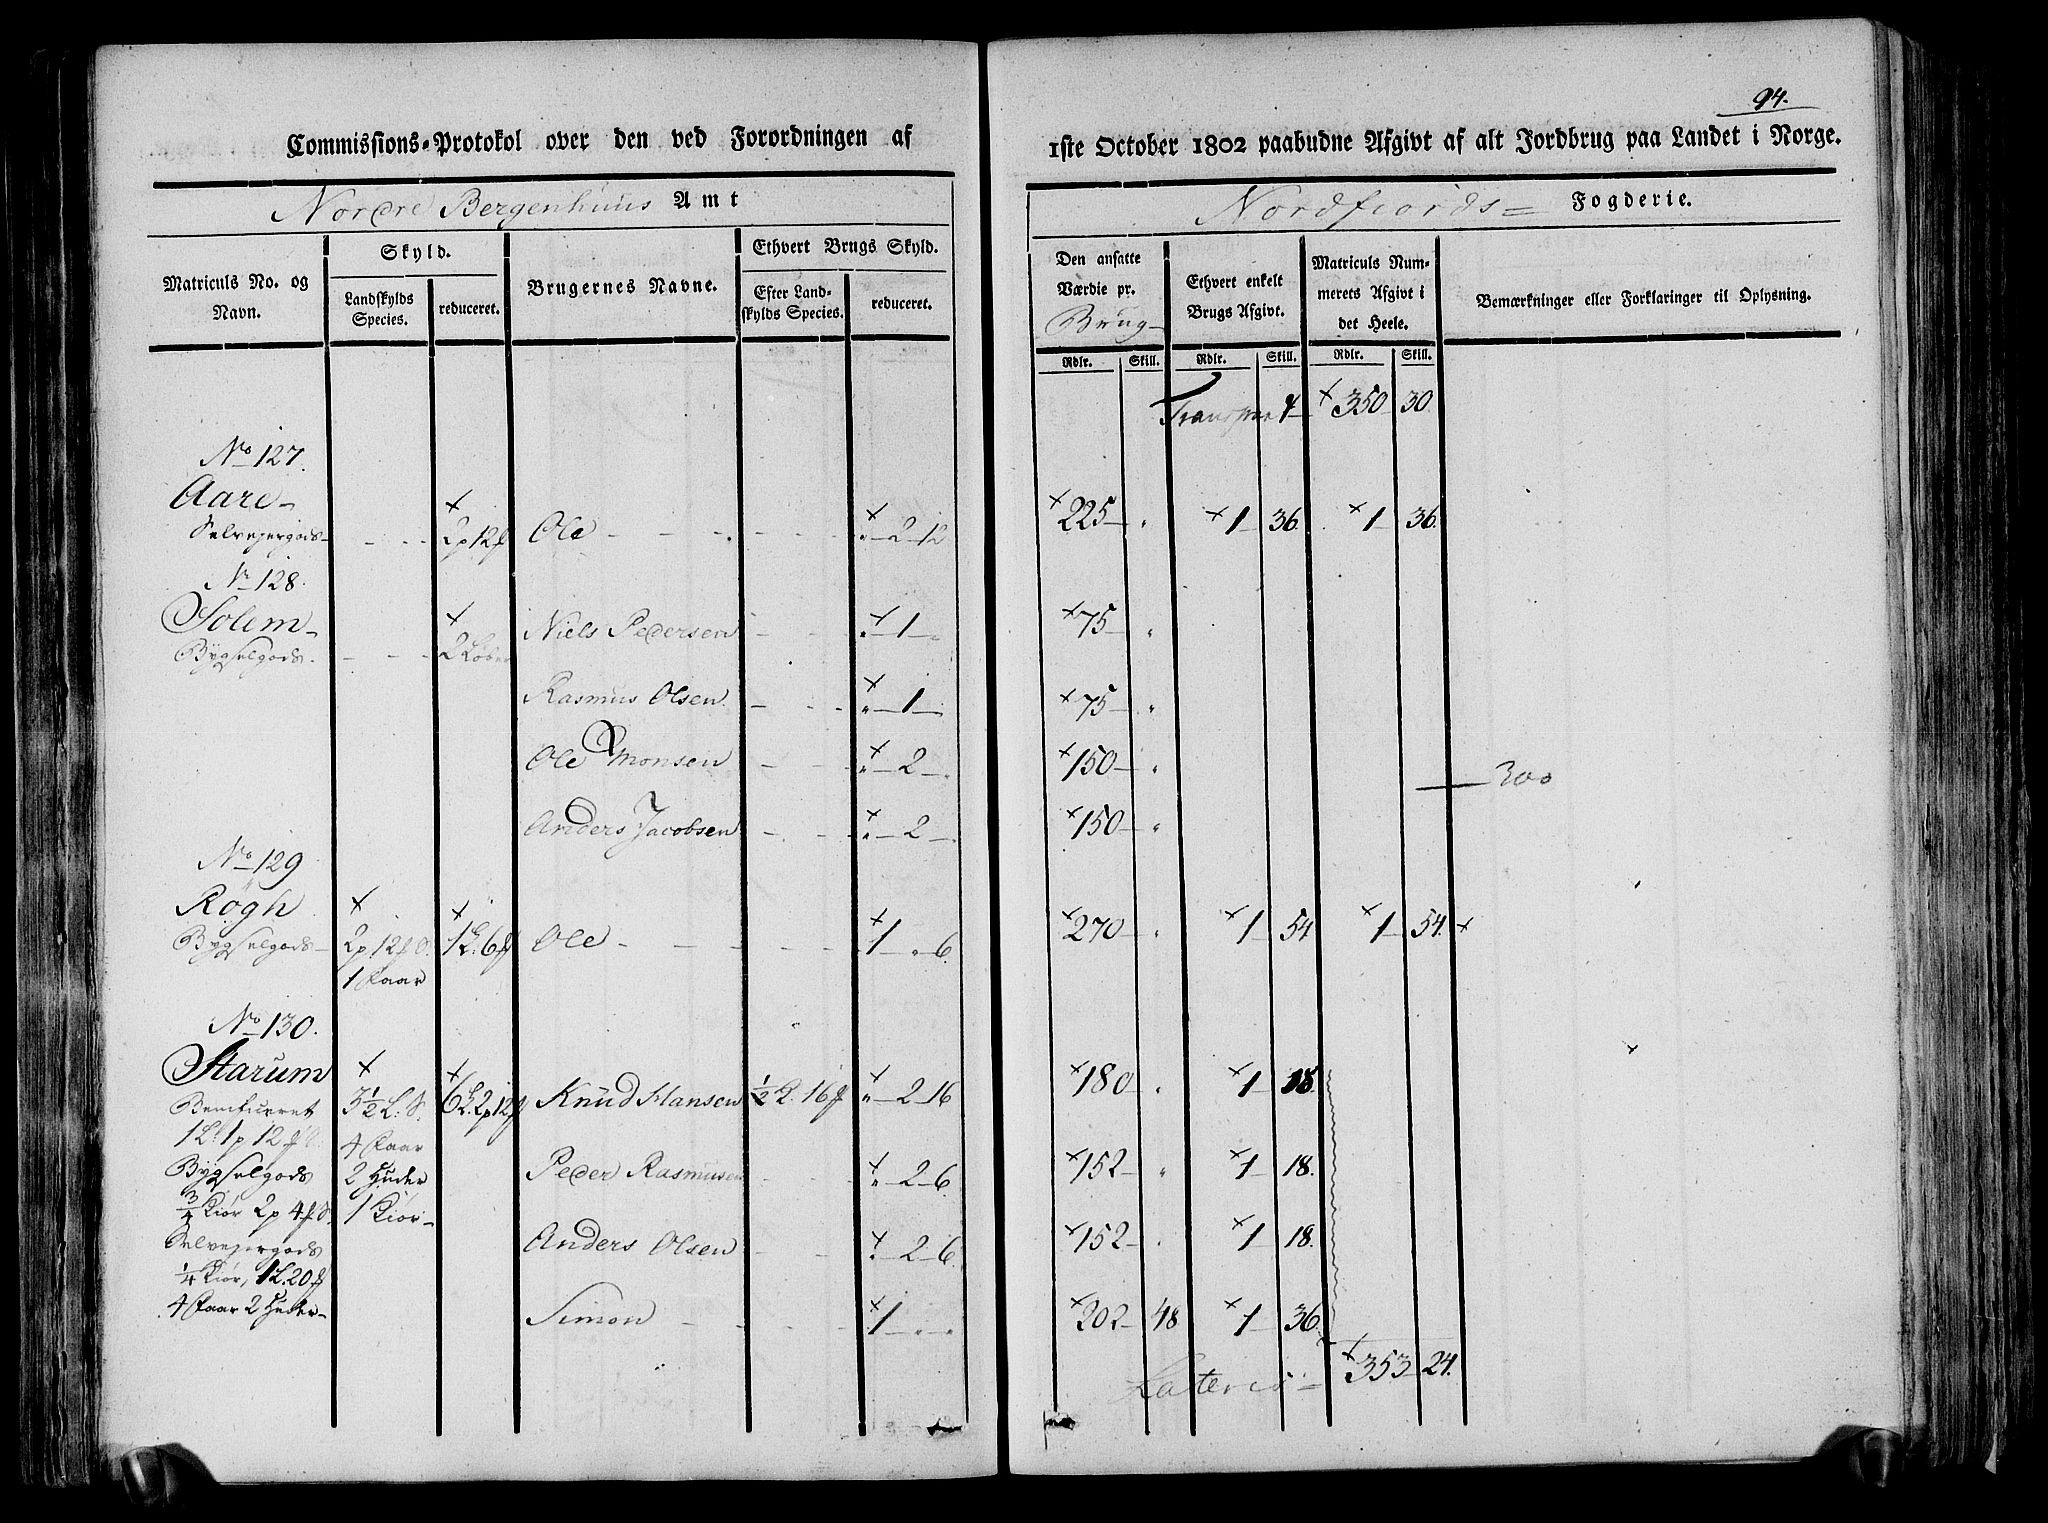 94.
Commissions-Protokol over den ved Forordningen af 1ste October 1802 paabudne Afgivt af alt Jordbrug paa Landet i Norge.
Nordre Bergenhuus Amt
Nordfiords= Fogderie.
Matriculs No. og Navn.
Skyld.
Landskylds Species.
reduceret.
Brugernes Navne.
Ethvert Brugs Skyld.
Efter Landskylds Species.
reduceret.
Den ansatte Værdie pr. Brug
Ethvert enkelt Brugs Afgivt.
Matriculs Nummerets Afgivt i det Heele.
Bemærkninger eller Forklaringer til Oplysning.
Rdlr. Skill. Rdlr. Skill. Rdlr. Skill.
Transport × 350 30.
No 127.
Aare
Selvejergods 2p 12 Ole 2 12 × 225 × 1 36. × 1 36.
No 128.
Solem
Bygselgods. 2 Løber Niels Pedersen 1 × 75
Rasmus Olsen 1 × 75
Ole Monsen 2 × 150
300
Anders Jacobsen 2 × 150
No 129
Rögh
Bygselgods 2p. 12 1L. 6 Ole 1 " 6. × 270 × 1 54 × 1 54. ×
1 Faar
No 130.
Starum
Beneficeret 3½ L. S. 6L. 2p 12 Knud Hansen ½ L. 16 2 16 × 180 × 1 18.
1L. 1p 12 4 Faar
Bygselgods 2 Huder Peder Rasmusen 2 6. × 152 × 1 18.
¾ Kiør 2p 4 1 Kiør
Selvejergods Anders Olsen 2 6. × 152 × 1 18.
¼ Kiør, 1L. 20
4 Faar 2 Huder Simon 1 × 202 48 × 1 36.
Lateris = × 353 24.